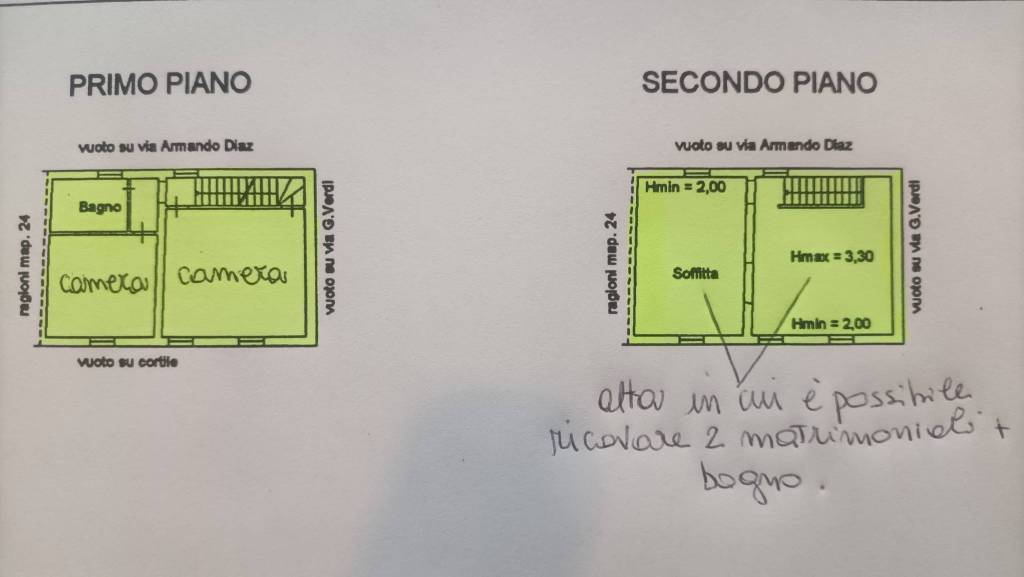 PRIMO PIANO
vuoto su via Armando Diaz
Bagno
camera
camera
ragioni map. 24
vuoto su via G.Verdi
vuoto su cortile
SECONDO PIANO
vuoto su via Armando Diaz
Hmin = 2,00
Hmax = 3,30
Soffitta
Hmin = 2,00
ragioni map. 24
vuoto su via G.Verdi
alta in cui è possibile
ricavare 2 matrimoniali +
bagno.